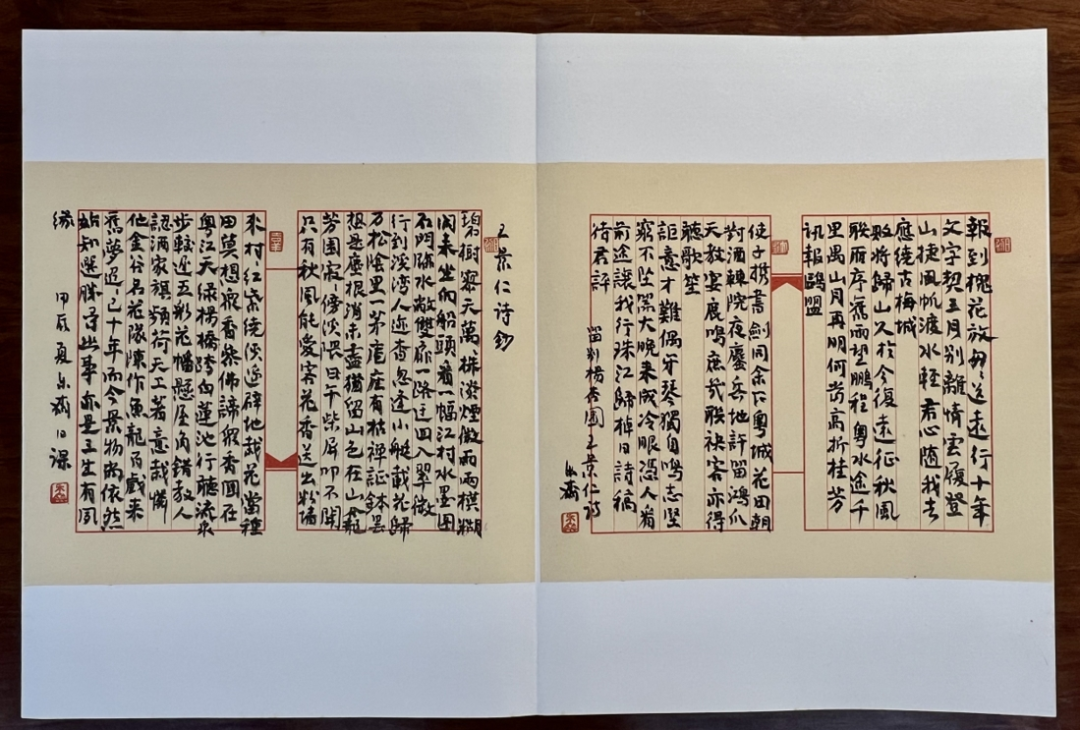 報到槐花放匆匆送遠行十年
文字契五月別離情雲履登
山捷風帆渡水輕君心隨我去
應繞古梅城
敗將歸山久於今復遠征秋風
聯雁序舊雨望鵬程粵水途千
里禺山月再明何當高折桂芳
訊報鷗盟
使子攜書劍同余下粵城花田朝
對酒棘院夜鏖兵地許留鴻爪
天教宴鹿鳴庶幾聯袂客亦得
聽歌笙
詎意才難偶牙琴獨自鳴志堅
窮不墜器大晚來成冷眼憑人看
前途讓我行珠江歸棹日詩稿
待君評
留別楊杏園王景仁詩
王景仁詩鈔
碧樹參天萬株淡煙微雨兩模糊
閒來坐向船頭看一幅江村水墨圖
石門臨水敞雙扉一路迂回入翠微
行到溪灣人迹杳忽逢小艇載花歸
万松陰里一茅庵座有枯禪証缽曇
想是塵根消未盡猶留山色在山龕
芳園寂傍溪隈日午柴扉叩不開
只有秋風能愛客花香送出粉墻
來村紅紫繞溪邊辟地栽花當種
田莫想聞香參佛諦眾香國在
粵江天綠楊橋跨白蓮池行聽流泉
步輕遲五彩花幡懸屋角錯教人
認酒家旗頻荷天工著意栽嘴
他金谷名花隊陳作魚龍百戲來
舊夢迢迢已十年而今景物尚依然
始知選勝尋幽事亦是三生有夙
緣
甲辰夏